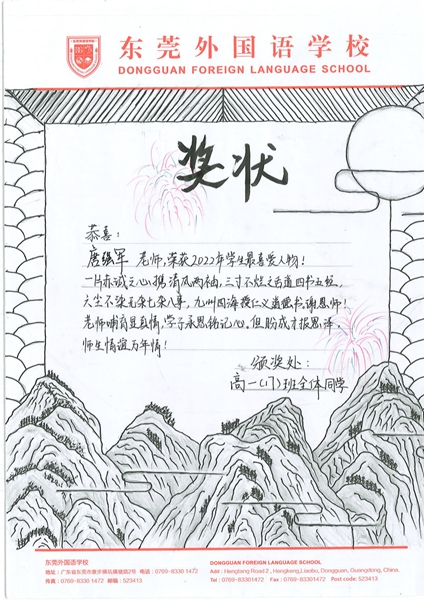 东莞外国语学校
DONGGUAN FOREIGN LANGUAGE SCHOOL
奖状
恭喜:
唐强军 老师,荣获2022年学生最喜爱人物!
一片赤诚之心携清风两袖,三寸不烂之舌道四书五经,
六尘不染无杂七杂八事,九州四海授仁义道德书,谢恩师!
老师哺育显真情,学子承恩铭记心。但盼成才报恩泽,
师生情谊万年情!
颁奖处:
高一(17)班全体同学
东莞外国语学校
地址:广东省东莞市寮步镇横坑横塘路2号 电话:0769-8330 1472
传真:0769-83301472 邮编:523413
DONGGUAN FOREIGN LANGUAGE SCHOOL
Add: Hengtang Road 2, Hengkeng,Liaobu, Dongguan, Guangdong, China.
Tel: 0769-83301472 Fax: 0769-8330 1472 Post code: 523413